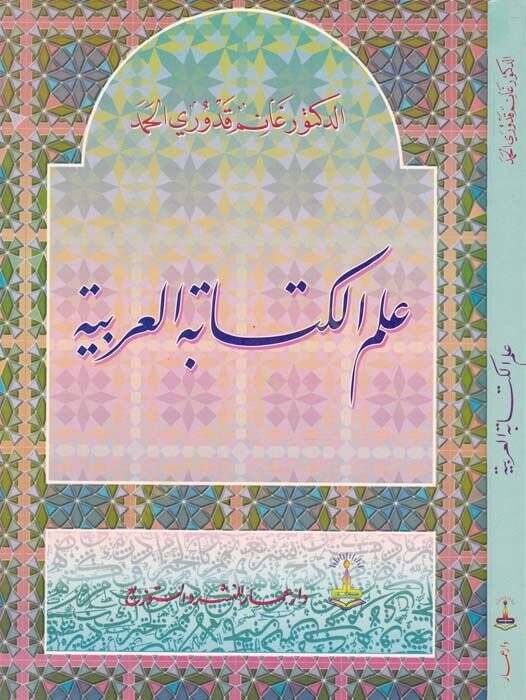 الدكتور غانم قدوري الحمد
علم الكتابة العربية
دار عمار للنشر والتوزيع
الدكتور غانم قدوري الحمد
علم الكتابة العربية
دار عمار